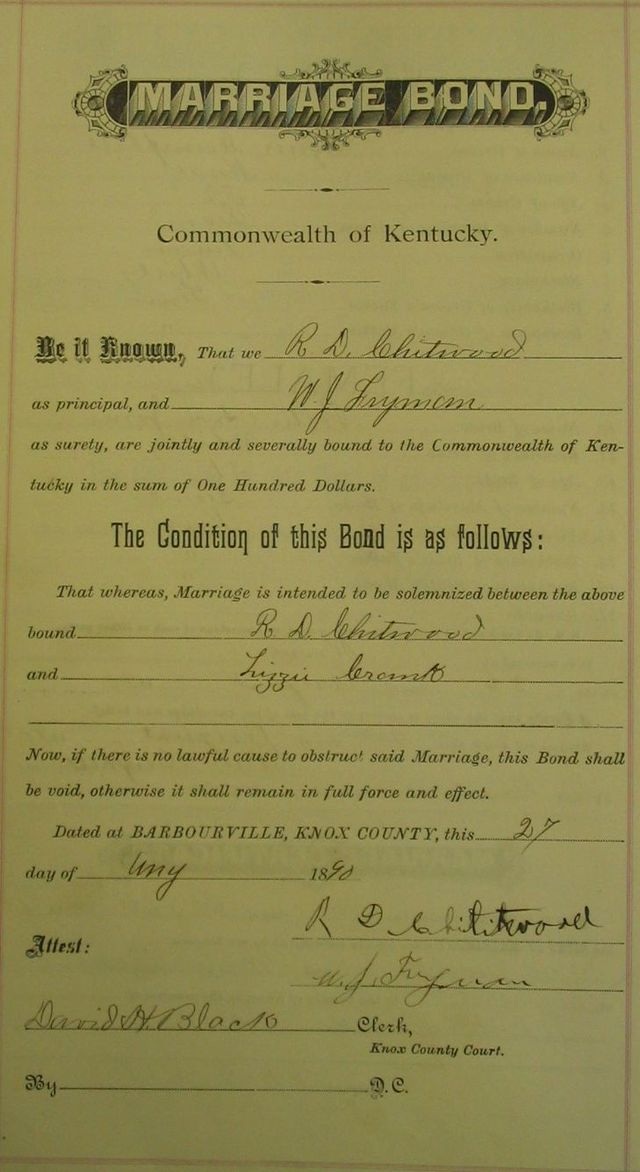 MARRIAGE BOND.
Commonwealth of Kentucky.
Be it Known, That we R D. Chitwood
as principal, and W J Fryman
as surety, are jointly and severally bound to the Commonwealth of Ken-
tucky in the sum of One Hundred Dollars.
The Condition of this Bond is as follows:
That whereas, Marriage is intended to be solemnized between the above
bound R D. Chitwood
and Lizzie
Now, if there is no lawful cause to obstruct said Marriage, this Bond shall
be void, otherwise it shall remain in full force and effect.
Dated at BARBOURVILLE, KNOX COUNTY, this 27
day of 1890
R D Chititwood
Attest:
W. J. Fryman
David H. Black Clerk,
Knox County Court.
By D.C.